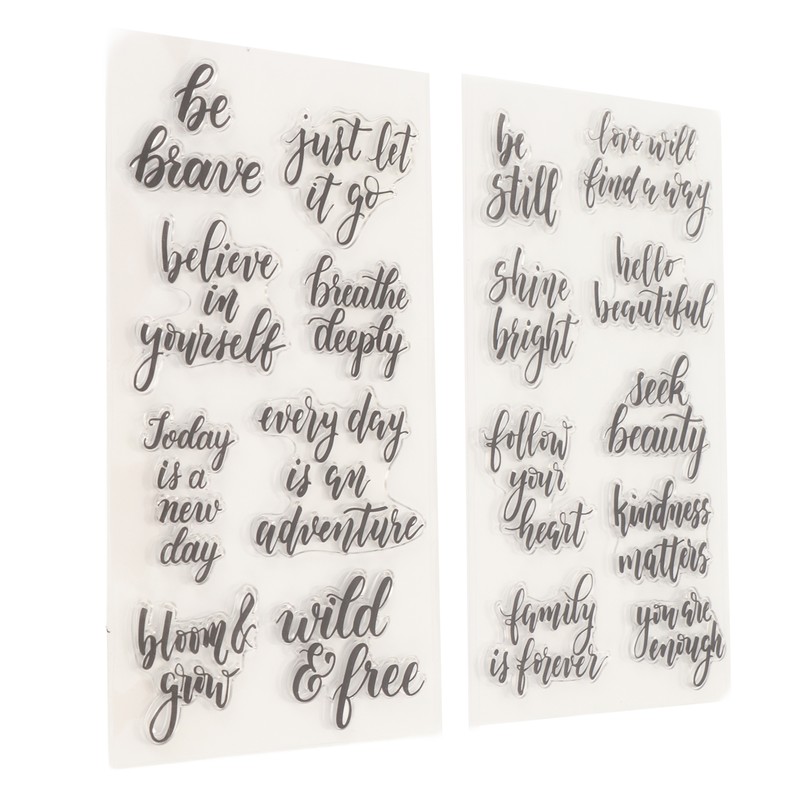 be
brave
just let
it go
believe
in
yourself
breathe
deeply
Today
is a
new
day
every day
is an
adventure
bloom &
grow
wild
& free
be
still
love will
find a way
shine
bright
hello
beautiful
follow
your
heart
seek
beauty
kindness
matters
family
is forever
you are
enough